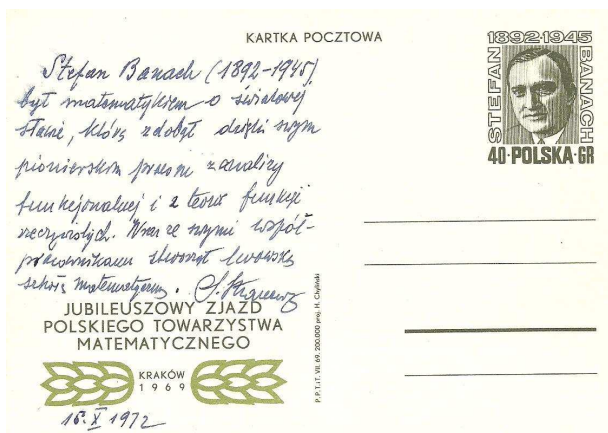 KARTKA POCZTOWA
STEFAN BANACH
1892-1945
40·POLSKA·GR
Stefan Banach (1892-1945)
był matematykiem o światowej
sławie, którą zdobył dzięki swym
pionierskim pracom z analizy
funkcjonalnej i z teorii funkcji
rzeczywistych. Wraz ze swymi współ-
pracownikami stworzył lwowską
szkołę matematyczną.
JUBILEUSZOWY ZJAZD
POLSKIEGO TOWARZYSTWA
MATEMATYCZNEGO
KRAKÓW
1969
P.P.T.iT. VII. 69. 200.000 proj. H. Chyliński
15.X 1972